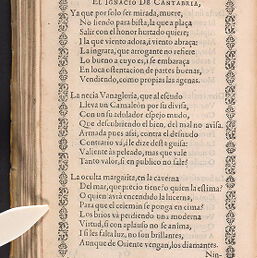 EL IGNACIO DE CANTABRIA,
Ya que por solo ser mirada, muere,
No siendo para vista, la que a plaça
Salir con el honor hurtado quiere;
I la que vienta adora, i viento abraça:
La ingrata, que arrogante no refiere
Lo bueno a cuyo es, i se embaraça
En loca ostentacion de partes buenas,
Vendiendo, como propias las agenas.
La necia Vanagloria, que al escudo
Lleva un Camaleon por su divisa,
Con un su atalador espejo mudo,
Que descubriendo el bien, del mal no avisa.
Armada pues assi, contra el desnudo
Contrario va, i le dize desta guisa:
Valiente às peleado, mas que vale
Tanto valor, si en publico no sale?
La oculta margarita, en la caverna
Del mar, que precio tiene? o quien la estima?
O quien avrà encendido la lucerna,
Para que el celemin se ponga en cima?
Los brios và perdiendo una moderna
Virtud, si con aplauso no se anima,
I si les falta luz, no son brillantes,
Aunque de Oriente vengan, los diamantes.
Nin-